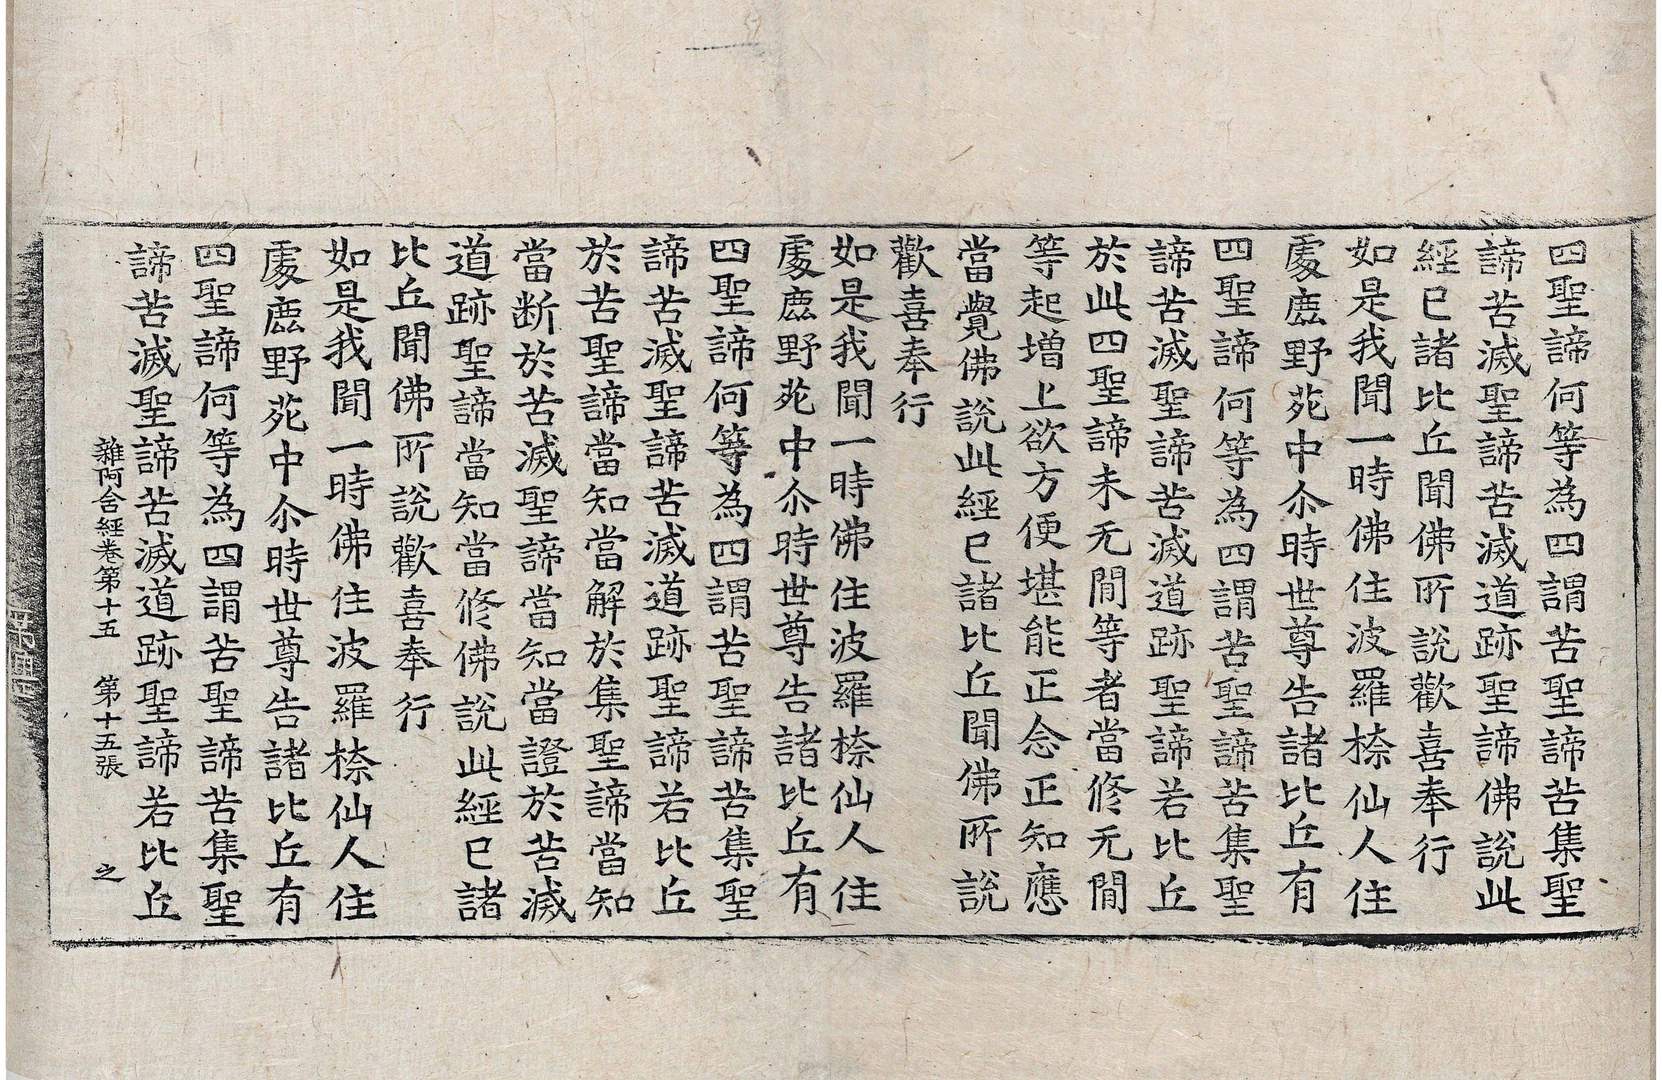 四聖諦何等為四謂苦聖諦苦集聖
諦苦滅聖諦苦滅道跡聖諦佛說此
經已諸比丘聞佛所說歡喜奉行
如是我聞一時佛住波羅㮈仙人住
處鹿野苑中尒時世尊告諸比丘有
四聖諦何等為四謂苦聖諦苦集聖
諦苦滅聖諦苦滅道跡聖諦若比丘
於此四聖諦未无閒等者當修无閒
等起增上欲方便堪能正念正知應
當覺佛說此經已諸比丘聞佛所說
歡喜奉行
如是我聞一時佛住波羅㮈仙人住
處鹿野苑中尒時世尊告諸比丘有
四聖諦何等為四謂苦聖諦苦集聖
諦苦滅聖諦苦滅道跡聖諦若比丘
於苦聖諦當知當解於集聖諦當知
當断於苦滅聖諦當知當證於苦滅
道跡聖諦當知當修佛說此經已諸
比丘聞佛所說歡喜奉行
如是我聞一時佛住波羅㮈仙人住
處鹿野苑中尒時世尊告諸比丘有
四聖諦何等為四謂苦聖諦苦集聖
諦苦滅聖諦苦滅道跡聖諦若比丘
雜阿含經卷第十五 第十五張 之